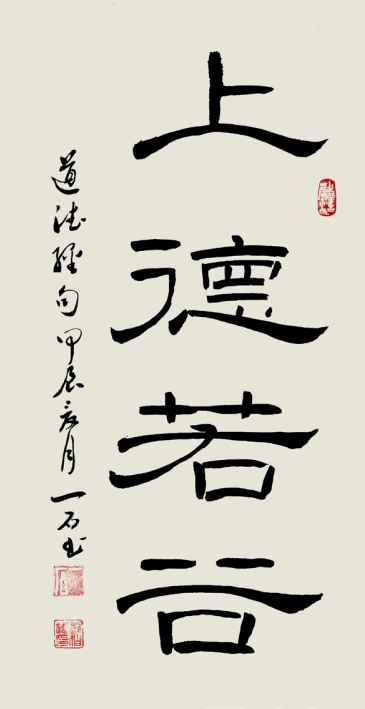 上德若谷
道德經句 甲辰 月 一石书